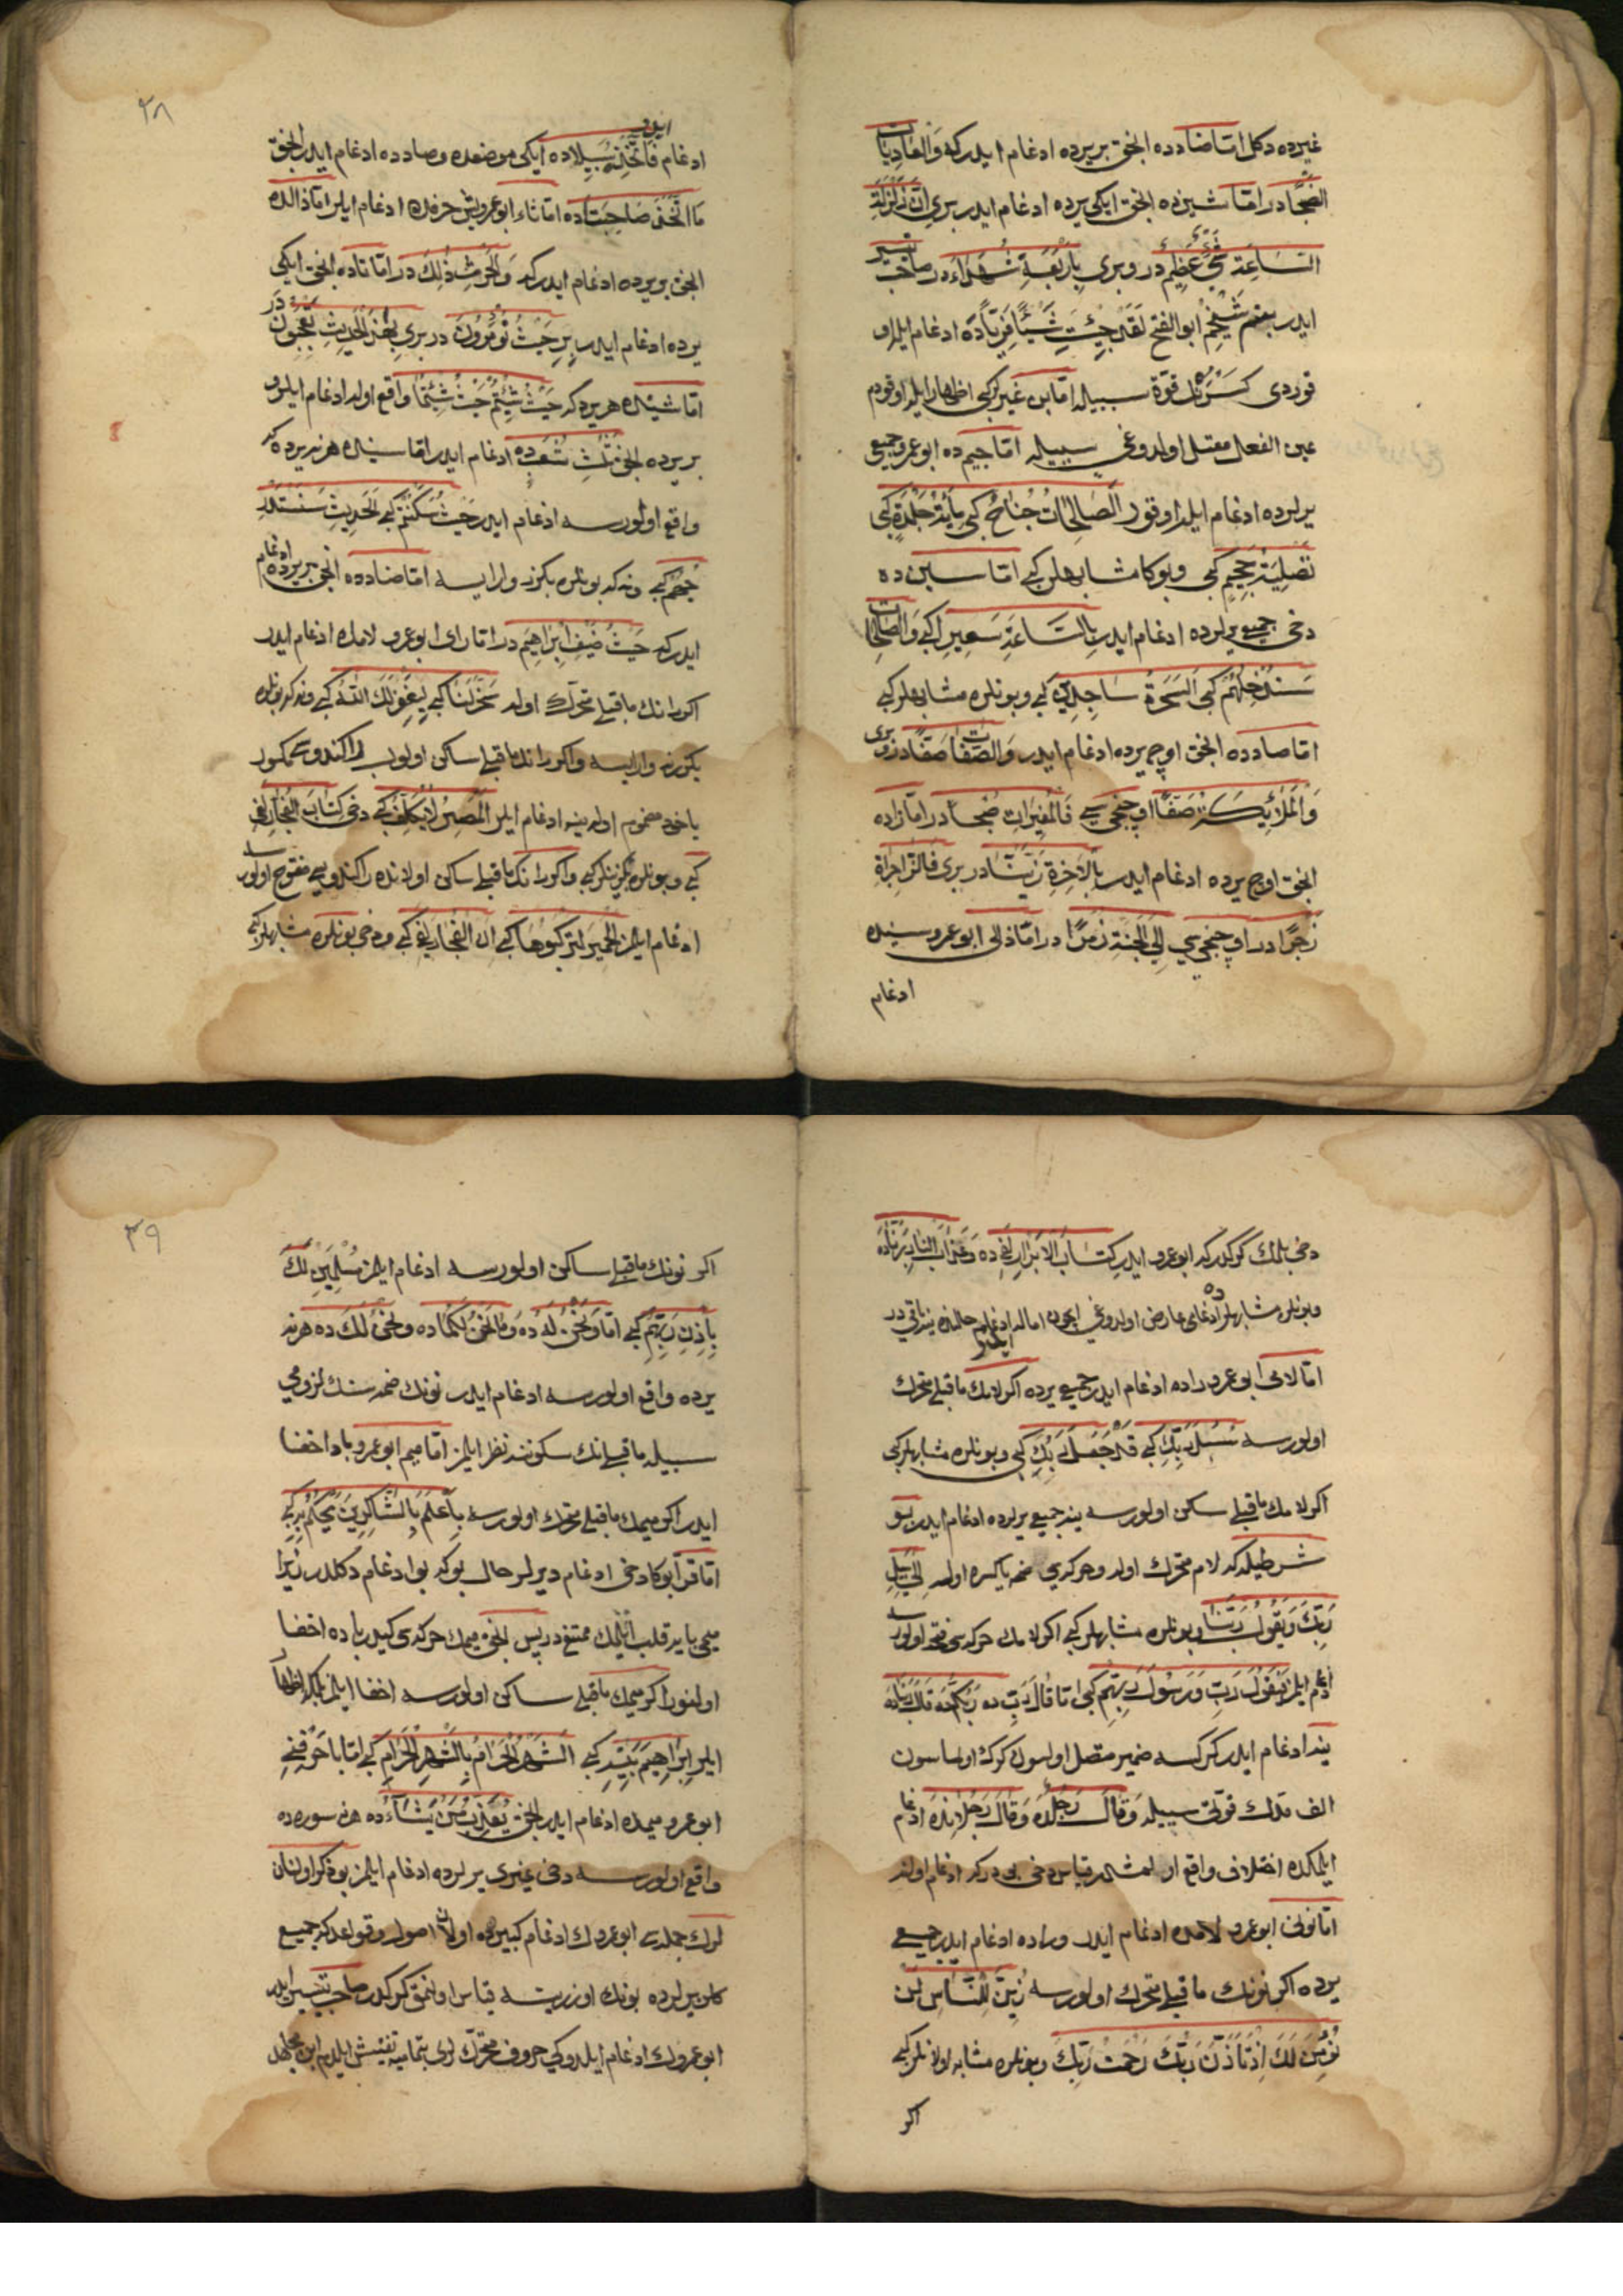 غيرده دكل امّا ضادده انجق بر يرده ادغام ايدر كه وَالْعَادِيَاتِ
ضَبْحًا در امّا شينده انجق ايكى يرده ادغام ايدر برى اِنَّ زَلْزَلَةَ
السَّاعَةِ شَيْءٌ عَظِيمٌ در و برى بِاَرْبَعَةِ شُهَدَاءَ در صاحب تيسير
ايدر بنم شيخم ابو الفتح لَقَدْ جِئْتِ شَيْئًا فَرِيًّا ده ادغام ايله
قوردى كسره نك قوة سببيله امّا بن غيركى اظهار ايله اوقودم
عين الفعل معتل اولدوغى سببيله امّا جيم ده ابو عمرو جميع
يرلرده ادغام ايله اوقور الصَّالِحَاتِ جُنَاحٌ كبى مِائَةَ جَلْدَةٍ كبى
تَصْلِيَةُ جَحِيمٍ كبى و بوكا مشابهلر كبى امّا سين ده
دخى جميع يرلرده ادغام ايدر بِالسَّاعَةِ سَعِيرًا كبى وَالصَّالِحَاتِ
سَنُدْخِلُهُمْ كبى اَلسَّحَرَةُ سَاجِدِينَ كبى و بونلره مشابهلر كبى
امّا صادده انجق اوچ يرده ادغام ايدر وَالصَّافَّاتِ صَفًّا در برى
وَالْمَلَائِكَةُ صَفًّا اوچنجى سى فَالْمُغِيرَاتِ صُبْحًا در امّا زاده
انجق اوچ يرده ادغام ايدر بِالْاٰخِرَةِ زَيَّنَّا در برى فَالزَّاجِرَاتِ
زَجْرًا در اوچنجى سى اِلَى الْجَنَّةِ زُمَرًا در امّا ذالى ابو عمرو سينده
ادغام
٣٨
ادغام ايدر فَاتَّخَذَ سَبِيلَهُ ده ايكى موضعده و صادده ادغام ايدر انجق
مَا اتَّخَذَ صَاحِبَةً ده امّا ثاء ابو عمرو بش حرفده ادغام ايلر امّا ذالده
انجق بر يرده ادغام ايدر كه وَالْحَرْثِ ذٰلِكَ در امّا تاده انجق ايكى
يرده ادغام ايدر برى حَيْثُ تُؤْمَرُونَ در برى اَفَمِنْ هٰذَا الْحَدِيثِ تَعْجَبُونَ در
امّا شينده هر يرده كه حَيْثُ شِئْتُمْ حَيْثُ شِئْتُمَا واقع اوله ادغام ايلر و
بر يرده انجق ثَلٰثِ شُعَبٍ ده ادغام ايدر امّا سينده هر نه يرده كه
واقع اولورسه ادغام ايدر حَيْثُ سَكَنْتُمْ كبى اَلْحَدِيثِ سَنَسْتَدْرِ
جُهُمْ كبى و نه كه بونلره بكزر وار ايسه امّا ضادده انجق بر يرده ادغام
ايدر كه حَدِيثُ ضَيْفِ اِبْرَاهِيمَ در امّا راى ابو عمرو لامده ادغام ايدر
اكر رانك ماقبلى متحرك اولر سَخَّرَ لَنَا كبى لِيَغْفِرَ لَكَ اللّٰهُ كبى و نه كه بونلره
بكزر وار ايسه و اكر رانك ماقبلى ساكن اولوب را كندوسى مكسور
ياخود مضموم اولر ينه ادغام ايلر اَلْمَصِيرُ لَا يُكَلِّفُ كبى دخى كِتَابَ الْفُجَّارِ لَفِى
كبى و بونلره بكزينلر كبى و اكر رانك ماقبلى ساكن اولاندن را كندوسى مفتوح اولورسه
ادغام ايلمز اَلْحَمِيرَ لِتَرْكَبُوهَا كبى اِنَّ الْفُجَّارَ لَفِى كبى و دخى بونلره مشابهلر كبى
دخى بلمك كركدر كه ابو عمرو ايدر كِتَابَ الْاَبْرَارِ لَفِى ده و عَذَابَ النَّارِ رَبَّنَا ده
و بونلره مشابهلرده ادغامى عارض اولدوغى اجون اماله ادغام حالنده ينه باقيدر
امّا لامى ابو عمرو راده ادغام ايدر جميع يرده اكر لامك ماقبلى متحرك
اولورسه سُبُلَ رَبِّكِ كبى قَدْ جَعَلَ رَبُّكِ كبى و بونلره مشابهلر كبى
اكر لامك ماقبلى ساكن اولورسه ينه جميع يرلرده ادغام ايدر بو
شرطيله كه لام متحرك اولر و حركه سى ضمه يا كسره اولر اِلٰى سَبِيلِ
رَبِّكَ وَيَقُولُ رَبَّنَا و بونلره مشابهلر كبى اكر لامك حركه سى فتحه اولورسه
ادغام ايلمز فَيَقُولَ رَبِّ وَرَسُولَ رَبِّهِمْ كبى امّا قَالَ رَبِّ ده رَبُّكُمْ ده قَالَ رَبُّنَا ده
ينه ادغام ايدر كركسه ضمير متصل اولسون كركسه اولماسون
الف مدّنك قوّتى سببيله وَقَالَ رَجُلٌ ده وَقَالَ رَجُلَانِ ده ادغام
ايلمكده اختلاف واقع اولمشدر قياس دخى بودر كه ادغام اولنه
امّا نونى ابو عمرو لامده ادغام ايدر و راده ادغام ايدر جميع
يرده اكر نونك ماقبلى متحرك اولورسه زُيِّنَ لِلنَّاسِ لَنْ
نُؤْمِنَ لَكَ اِذْ تَاَذَّنَ رَبُّكَ رَحْمَتِ رَبِّكَ و بونلره مشابه اولانلر كبى
اكر
٣٩
اكر نونك ماقبلى ساكن اولورسه ادغام ايلمز مُسْلِمَيْنِ لَكَ
بِاِذْنِ رَبِّهِمْ كبى امّا وَنَحْنُ لَهُ ده وَمَا نَحْنُ لَكُمَا ده وَنَحْنُ لَكَ ده هر نه
يرده واقع اولورسه ادغام ايدر نونك ضمه سنك لزومى
سببيله ماقبلنك سكوننه نظر ايلمز امّا ميم ابو عمرو باده اخفا
ايدر اكر ميمك ماقبلى متحرك اولورسه بِاَعْلَمَ بِالشَّاكِرِينَ يَحْكُمُ بِهِ كبى
امّا قرّا بوكا دخى ادغام ديرلر حال بو كه بو ادغام دكلدر زيرا
ميمى بايه قلب ايلمك ممتنع در پس انجق ميمك حركه سى كيدر باده اخفا
اولنور اكر ميمك ماقبلى ساكن اولورسه اخفا ايلمز بلكه اظهار
ايلر اِبْرَاهِيمُ بَنِيهِ كبى اَلشَّهْرُ الْحَرَامُ بِالشَّهْرِ الْحَرَامِ كبى امّا با حرفنى
ابو عمرو ميمده ادغام ايدر انجق يُعَذِّبُ مَنْ يَشَاءُ ده هر نه سوره ده
واقع اولورسه دخى غيرى يرلرده ادغام ايلمز بو ذكر اولنان
لرك جمله سى ابو عمرونك ادغام كبيرده اولان اصول و قواعد كه جميع
كلن يرلرده بونك اوزرينه قياس اولنمق كركدر صاحب تيسير ايدر
ابو عمرونك ادغام ايلدوكى حروف متحرك لرى بتماميه تفتيش ايلدم ابن مجاهد